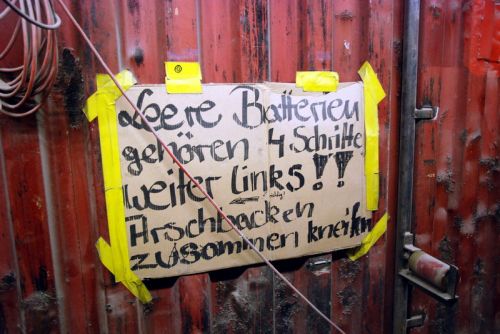 Leere Batterien
gehören 4 Schritte
weiter links!!
Arschbacken
zusammen kneifen